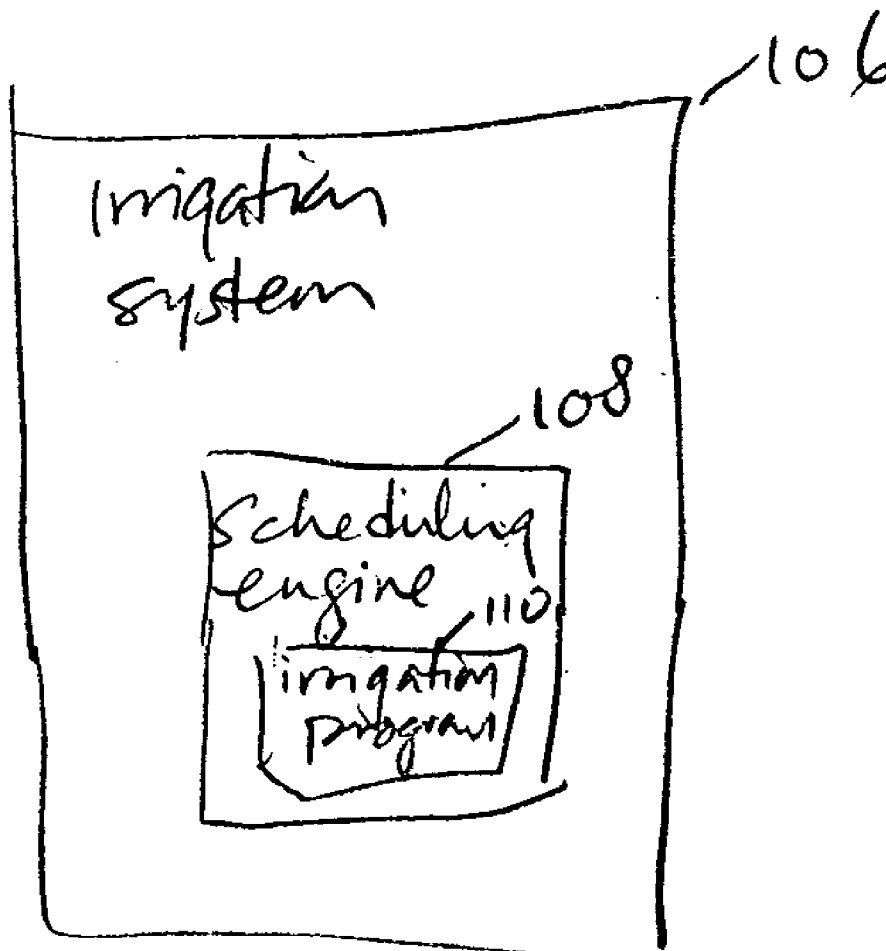 106
Irrigation
system
108
Scheduling
engine
110
irrigation
program